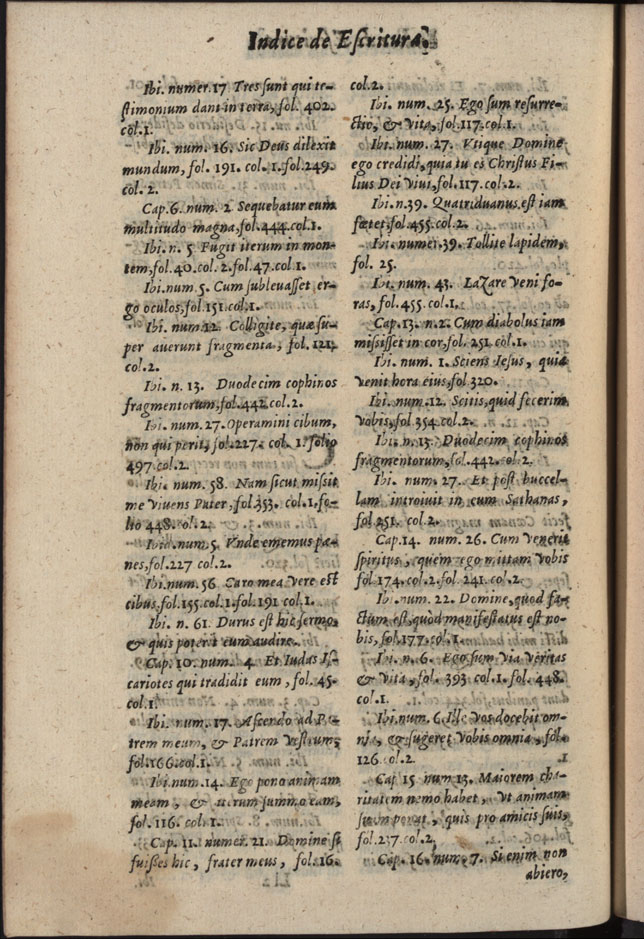 Indice de Escritura.
Ibi. numer.17 Tres sunt qui te-
stimonium dant in terra, fol. 402.
col.1.
Ibi. num. 16. Sic Deus dilexit
mundum, fol. 191. col. 1. fol.249.
col. 2.
Cap.6. num. 2 Sequebatur eum
multitudo magna, fol.444.col.1.
Ibi. n. 5 Fugit iterum in mon-
tem, fol.40.col. 2. fol.47.col 1.
Ibi.num 5. Cum sublevasset er-
go oculos, fol.151.col.1.
Ibi. num.12. Colligite, quæ su-
per averunt fragmenta, fol. 121.
col.2.
Ibi. n. 13. Duodecim cophinos
fragmentorum, fol.442.col.2.
Ibi. num.27. Operamini cibum,
non qui perit, fol.227. col. 1. folio
497.col.2.
Ibi. num. 58. Nam sicut misit
me vivens Pater, fol.353. col.1. fo-
lio 448. col.2.
Ibid.num.5. Vnde ememus pæ-
nes, fol.227 col.2.
Ibi.num.56. Caro mea vere est
cibus, fol.155.col.1. fol.191 col.1.
Ibi. n. 61. Durus est hic sermo,
& quis poterit eum audire.
Cap. 10. num. 4. Et Iudas Is-
cariotes qui tradidit eum, fol. 45.
col.1.
Ibi. num. 17. Ascendo ad Pa-
trem meum, & Patrem vestrum,
fol.166.col.1.
Ibi.num.14. Ego pono animam
meam, & iterum sumo eam,
fol. 116. col. 1.
Cap. 11. numer. 21. Domine si
fuisses hic, frater meus, fol.16.
col.2.
Ibi. num. 25. Ego sum resurre-
ctio, & vita, fol.117.col.1.
Ibi. num. 27. Vtique Domine
ego credidi, quia tu es Christus Fi-
lius Dei vivi, fol.117.col.2.
Ibi.n.39. Quatriduanus est iam
fœtet, fol.455.col.2.
Ibi. numer.39. Tollite lapidem,
fol. 25.
Ibi. num. 43. Lazare veni fo-
ras, fol.455.col.1.
Cap.13. n.2. Cum diabolus iam
misisset in cor, fol.251.col.1.
Ibi. num. 1. Sciens Iesus, quia
venit hora eius, fol.320.
Ibi. num.12. Scitis, quid fecerim
vobis, fol.354.col.2.
Ibi. n.13. Duodecim cophinos
fragmentorum, fol.442. col.2.
Ibi. num. 27. Et post buccel-
lam introivit in eum Sathanas,
fol.251. col.2.
Cap.14. num. 26. Cum venerit
spiritus, quem ego mittam vobis
fol.174.col.2.fol.241.col.2
Ibi.num. 22. Domine, quod fa-
ctum est, quòd manifestatus est no-
bis, fol.177.col.1.
Ibi. n. 6. Ego sum via veritas
& vita, fol. 393 col.1. fol. 448.
col.1.
Ibi.num. 6 Ille vos docebit om-
nia, & sugeret vobis omnia, fol.
126.col.2
Cap 15 num 13. Maiorem cha-
ritatem nemo habet, vt animam
suam ponat, quis pro amicis suis,
fol.237.col.2.
Cap. 16. num. 7. Si enim non
abiero,